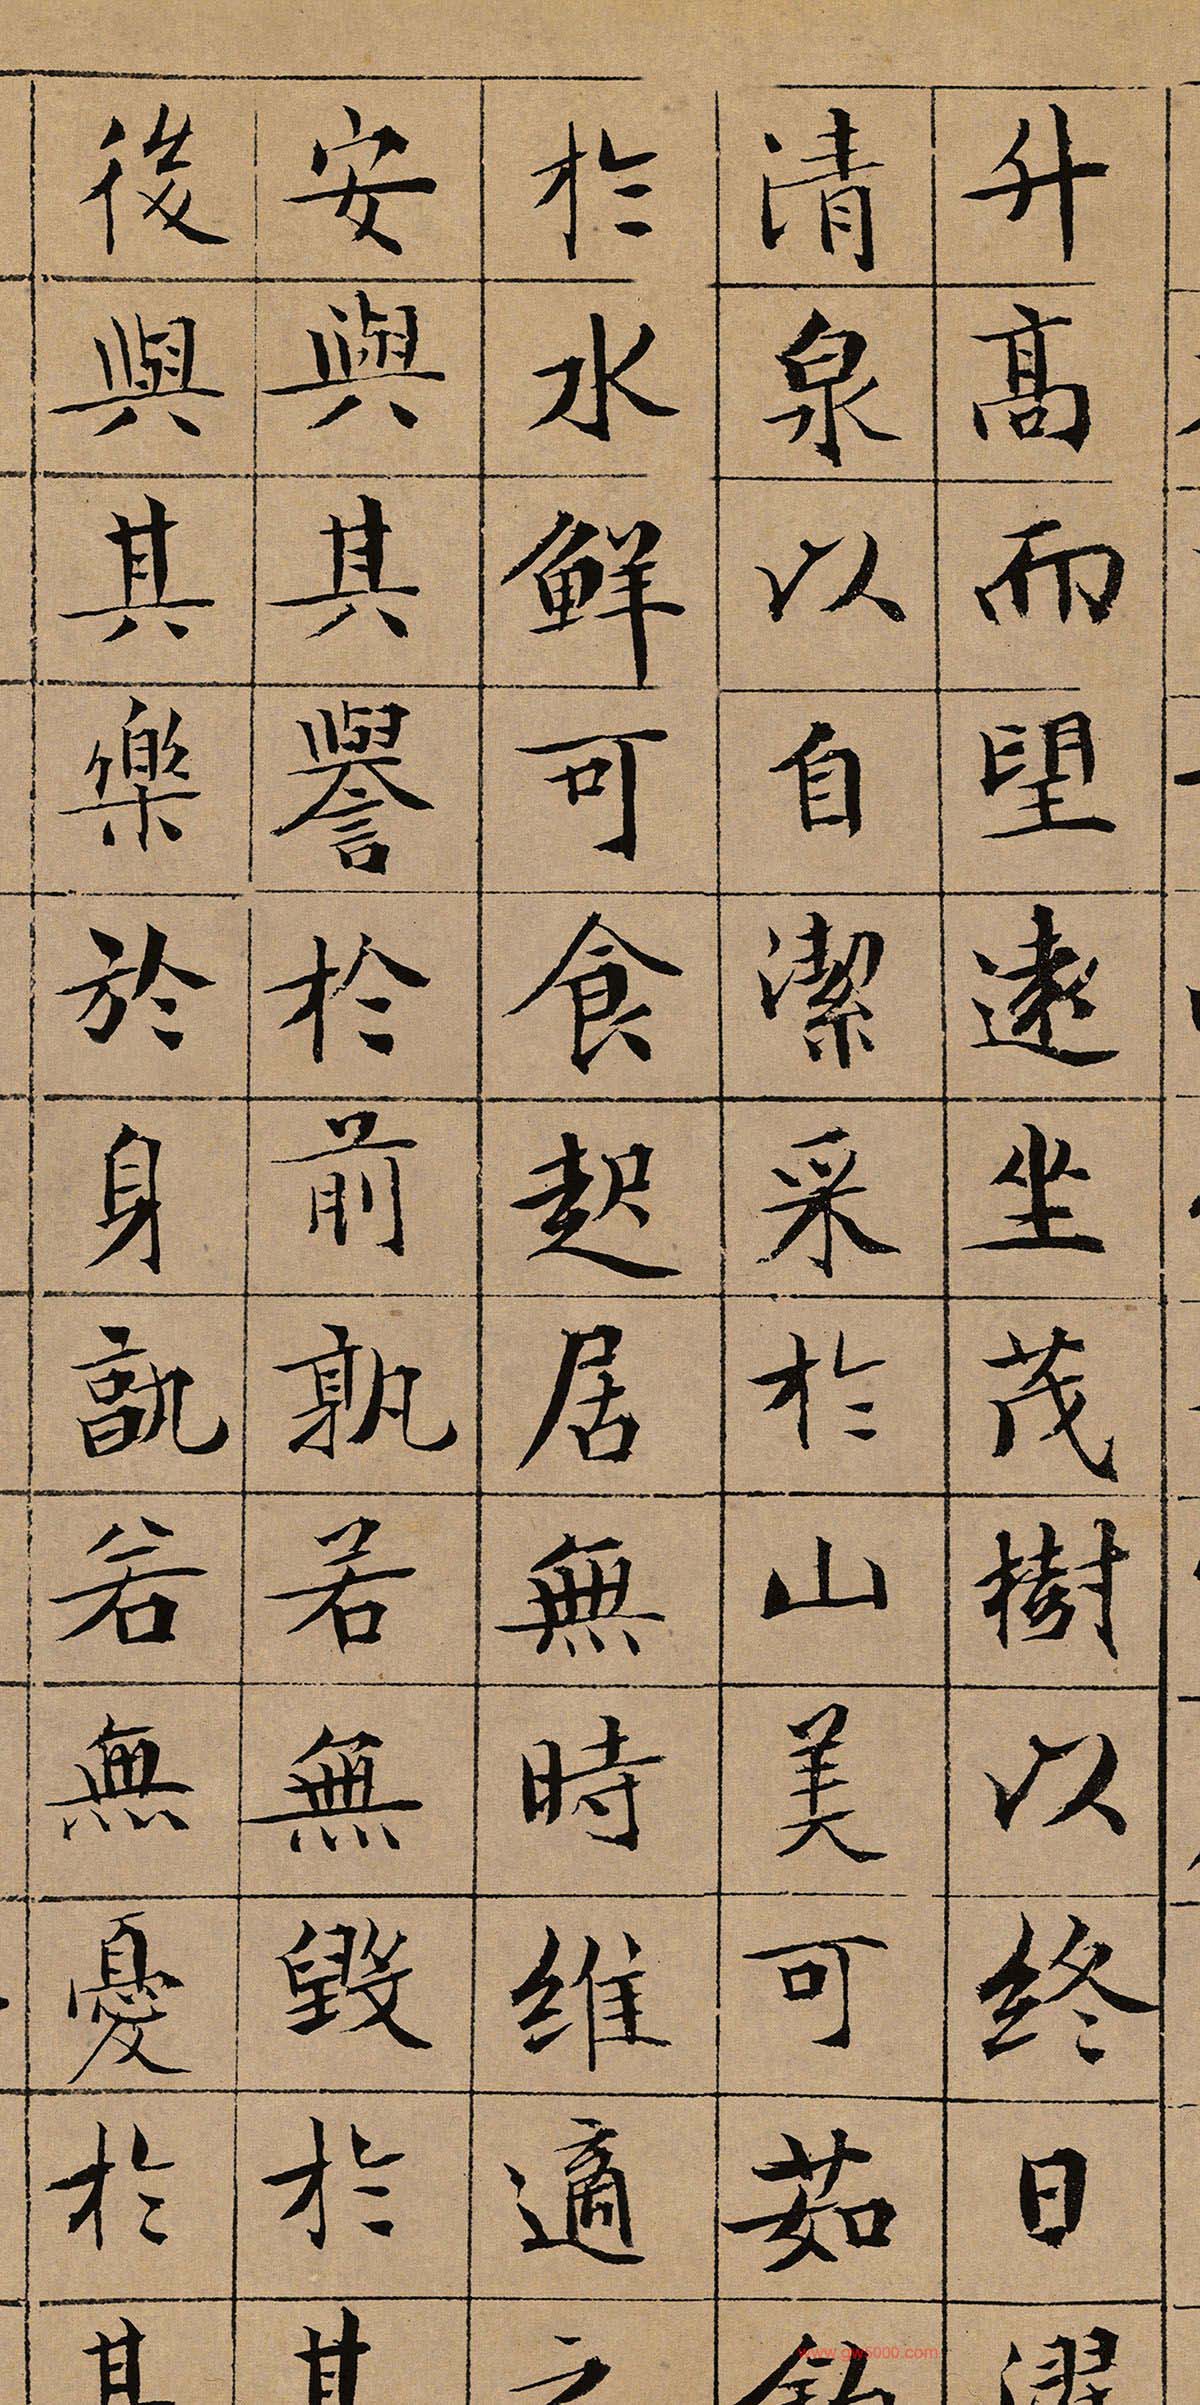 升高而望遠坐茂樹以終日濯
清泉以自潔采於山美可茹釣
於水鮮可食起居無時維適之
安與其譽於前孰若無毀於
後與其樂於身孰若無憂於其
www.gw5000.com